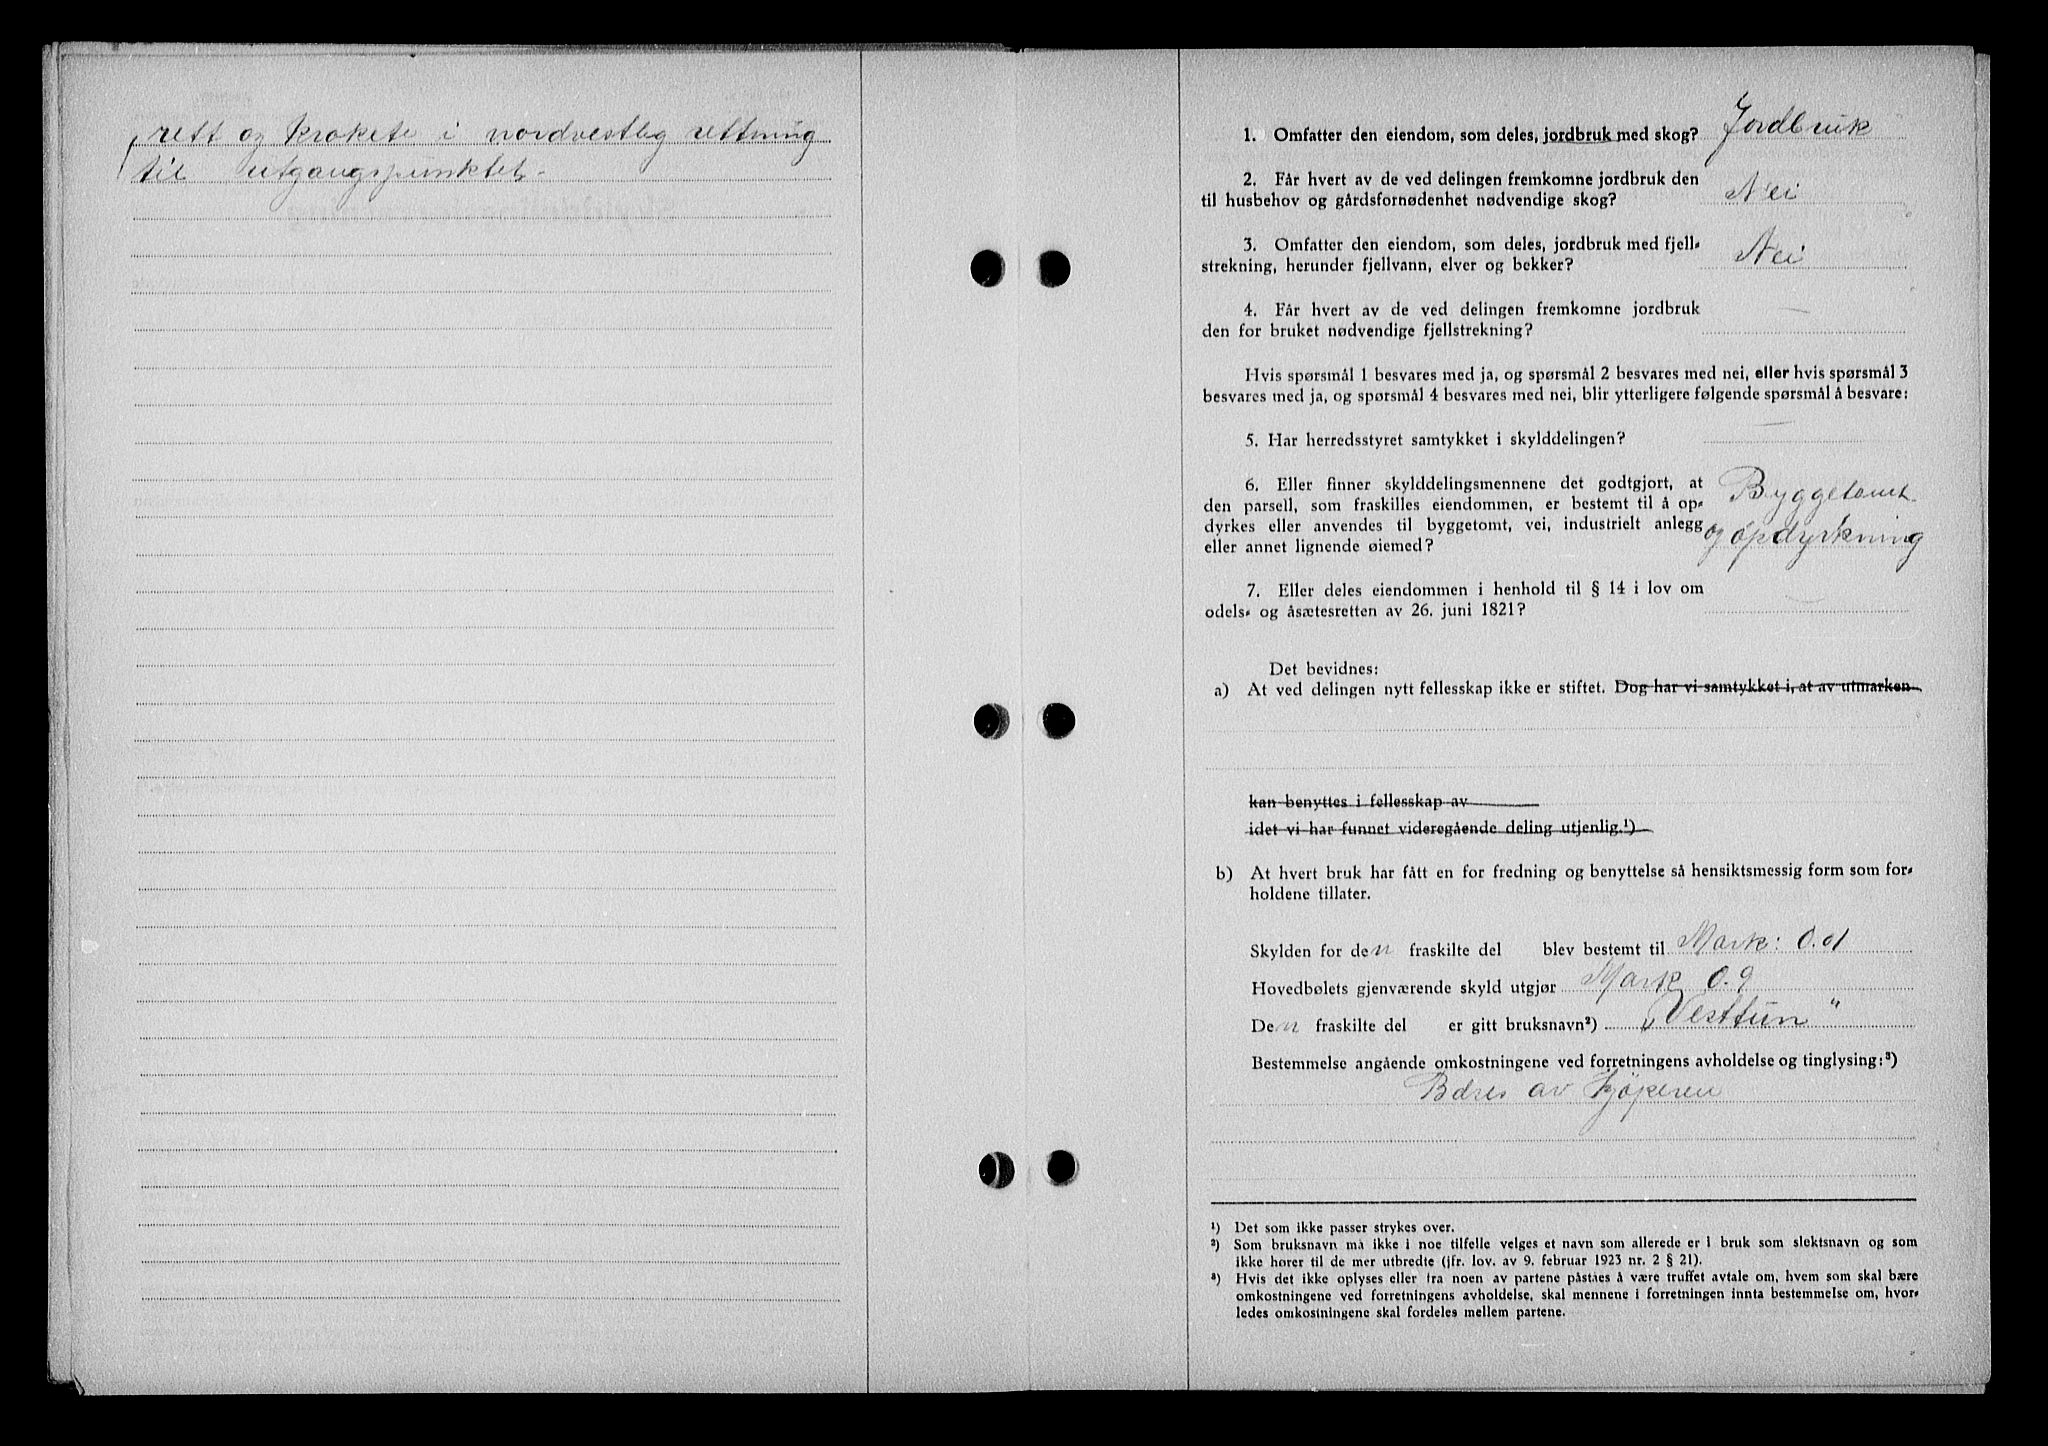 rett og krokete i nordvestlig rettning
til utgangspunktet.
1. Omfatter den eiendom, som deles, jordbruk med skog? Jordbruk
2. Får hvert av de ved delingen fremkomne jordbruk den
til husbehov og gårdsfornødenhet nødvendige skog? Nei
3. Omfatter den eiendom, som deles, jordbruk med fjell-
strekning, herunder fjellvann, elver og bekker? Nei
4. Får hvert av de ved delingen fremkomne jordbruk —
den for bruket nødvendige fjellstrekning?
Hvis spørsmål 1 besvares med ja, og spørsmål 2 besvares med nei, eller hvis spørsmål 3
besvares med ja, og spørsmål 4 besvares med nei, blir ytterligere følgende spørsmål å besvare:
5. Har herredsstyret samtykket i skylddelingen? —
6. Eller finner skylddelingsmennene det godtgjort, at Byggetomt
den parsell, som fraskilles eiendommen, er bestemt til å op-
dyrkes eller anvendes til byggetomt, vei, industrielt anlegg og opdyrkning
eller annet lignende øiemed?
7. Eller deles eiendommen i henhold til § 14 i lov om —
odels- og åsætesretten av 26. juni 1821?
Det bevidnes:
a) At ved delingen nytt fellesskap ikke er stiftet. Dog har vi samtykket i, at av utmarken
kan benyttes i fellesskap av
idet vi har funnet videregående deling utjenlig.¹)
b) At hvert bruk har fått en for fredning og benyttelse så hensiktsmessig form som for-
holdene tillater.
Skylden for den fraskilte del blev bestemt til Mark: 0.01
Hovedbølets gjenværende skyld utgjør Mark 0.9
Den fraskilte del er gitt bruksnavn²) „Vesttun"
Bestemmelse angående omkostningene ved forretningens avholdelse og tinglysing:³)
Bæres av kjøperen
¹) Det som ikke passer strykes over.
²) Som bruksnavn må ikke i noe tilfelle velges et navn som allerede er i bruk som slektsnavn og som
ikke hører til de mer utbredte (jfr. lov. av 9. februar 1923 nr. 2 § 21).
³) Hvis det ikke oplyses eller fra noen av partene påståes å være truffet avtale om, hvem som skal bære
omkostningene ved forretningens avholdelse, skal mennene i forretningen innta bestemmelse om, hvor-
ledes omkostningene skal fordeles mellem partene.